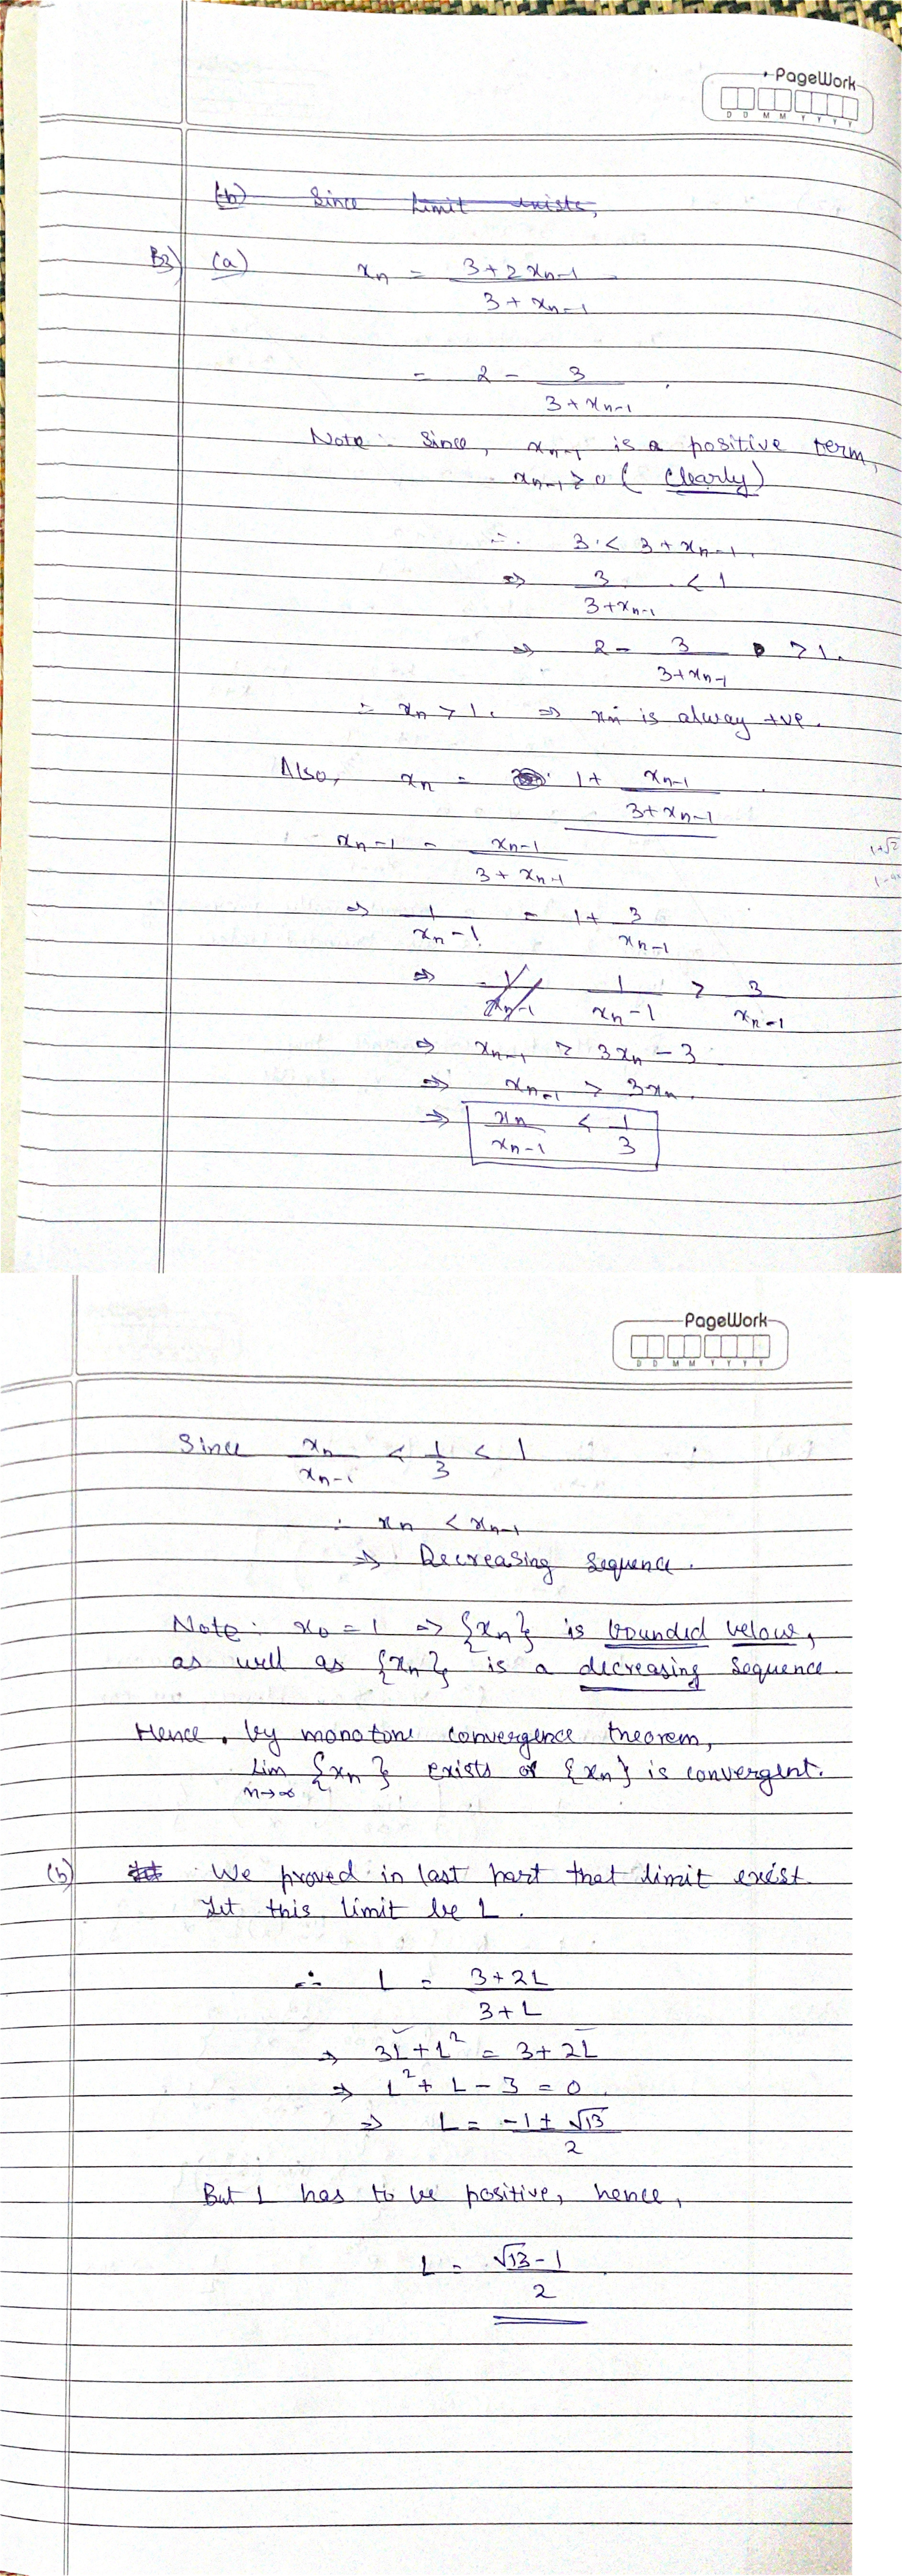 PageWork
D D M M Y Y Y Y
(b) Since limit exists,
B3) (a) xₙ = (3 + 2xₙ₋₁)/(3 + xₙ₋₁)
= 2 - 3/(3 + xₙ₋₁)
Note :- Since, xₙ₋₁ is a positive term,
xₙ₋₁ > 0 ( Clearly)
∴ 3 < 3 + xₙ₋₁.
⇒ 3/(3 + xₙ₋₁) < 1
⇒ 2 - 3/(3 + xₙ₋₁) > 1.
∴ xₙ > 1. ⇒ xₙ is alway +ve.
Also, xₙ = 1 + xₙ₋₁/(3 + xₙ₋₁)
xₙ - 1 = xₙ₋₁/(3 + xₙ₋₁)
⇒ 1/(xₙ - 1) = 1 + 3/xₙ₋₁
⇒ 1/(xₙ - 1) > 3/xₙ₋₁
⇒ xₙ₋₁ > 3xₙ - 3
⇒ xₙ₋₁ > 3xₙ.
⇒ xₙ/xₙ₋₁ < 1/3
PageWork
D D M M Y Y Y Y
Since xₙ/xₙ₋₁ < 1/3 < 1
∴ xₙ < xₙ₋₁
⇒ Decreasing Sequence.
Note: x₀ = 1 ⇒ {xₙ} is bounded below,
as well as {xₙ} is a decreasing Sequence.
Hence, by monotone convergence theorem,
Lim n→∞ {xₙ} exists or {xₙ} is convergent.
(b) We proved in last part that limit exist.
Let this limit be L.
∴ L = (3 + 2L)/(3 + L)
⇒ 3L + L² = 3 + 2L
⇒ L² + L - 3 = 0
⇒ L = (-1 ± √13)/2
But L has to be positive, hence,
L = (√13 - 1)/2